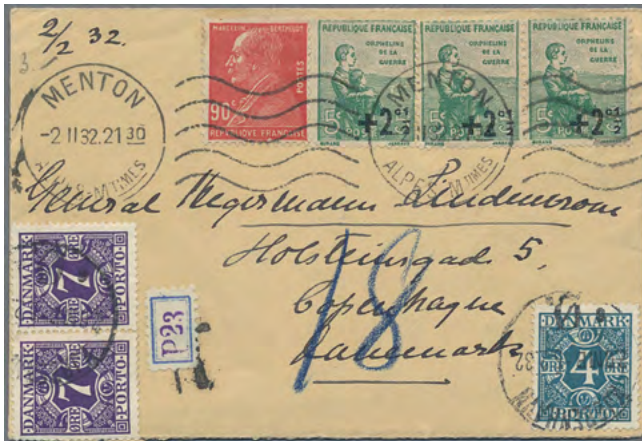 2/2 32.
3
MENTON
-2 II 32.21 30
ALPES-MTIMES
MARCELIN BERTHELOT
90c
POSTES
RÉPUBLIQUE FRANÇAISE
RÉPUBLIQUE FRANÇAISE
ORPHELINS
DE LA
GUERRE
5c +2cts
POSTES
RÉPUBLIQUE FRANÇAISE
ORPHELINS
DE LA
GUERRE
5c +2cts
RÉPUBLIQUE FRANÇAISE
ORPHELINS
DE LA
GUERRE
5c +2cts
MENTON
ALPES-MTIMES
General Wegermann Lindencrone
Holsteinsgade 5,
Copenhague
Danemark
18
P23
DANMARK
7
ØRE
PORTO
DANMARK
7
ØRE
PORTO
DANMARK
ØRE 4 ØRE
PORTO
32